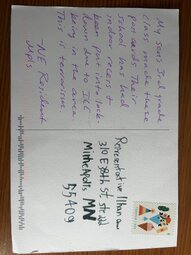 My son's 3rd grade
class made these
postcards. Their
school has had
indoor recess +
been put in lock-
down due to ICE
being in the area.
This is terrorism.
-NE Resident
Mpls
Representative Ilhan
310 E 38th St. Ste
Minneapolis MN
55409